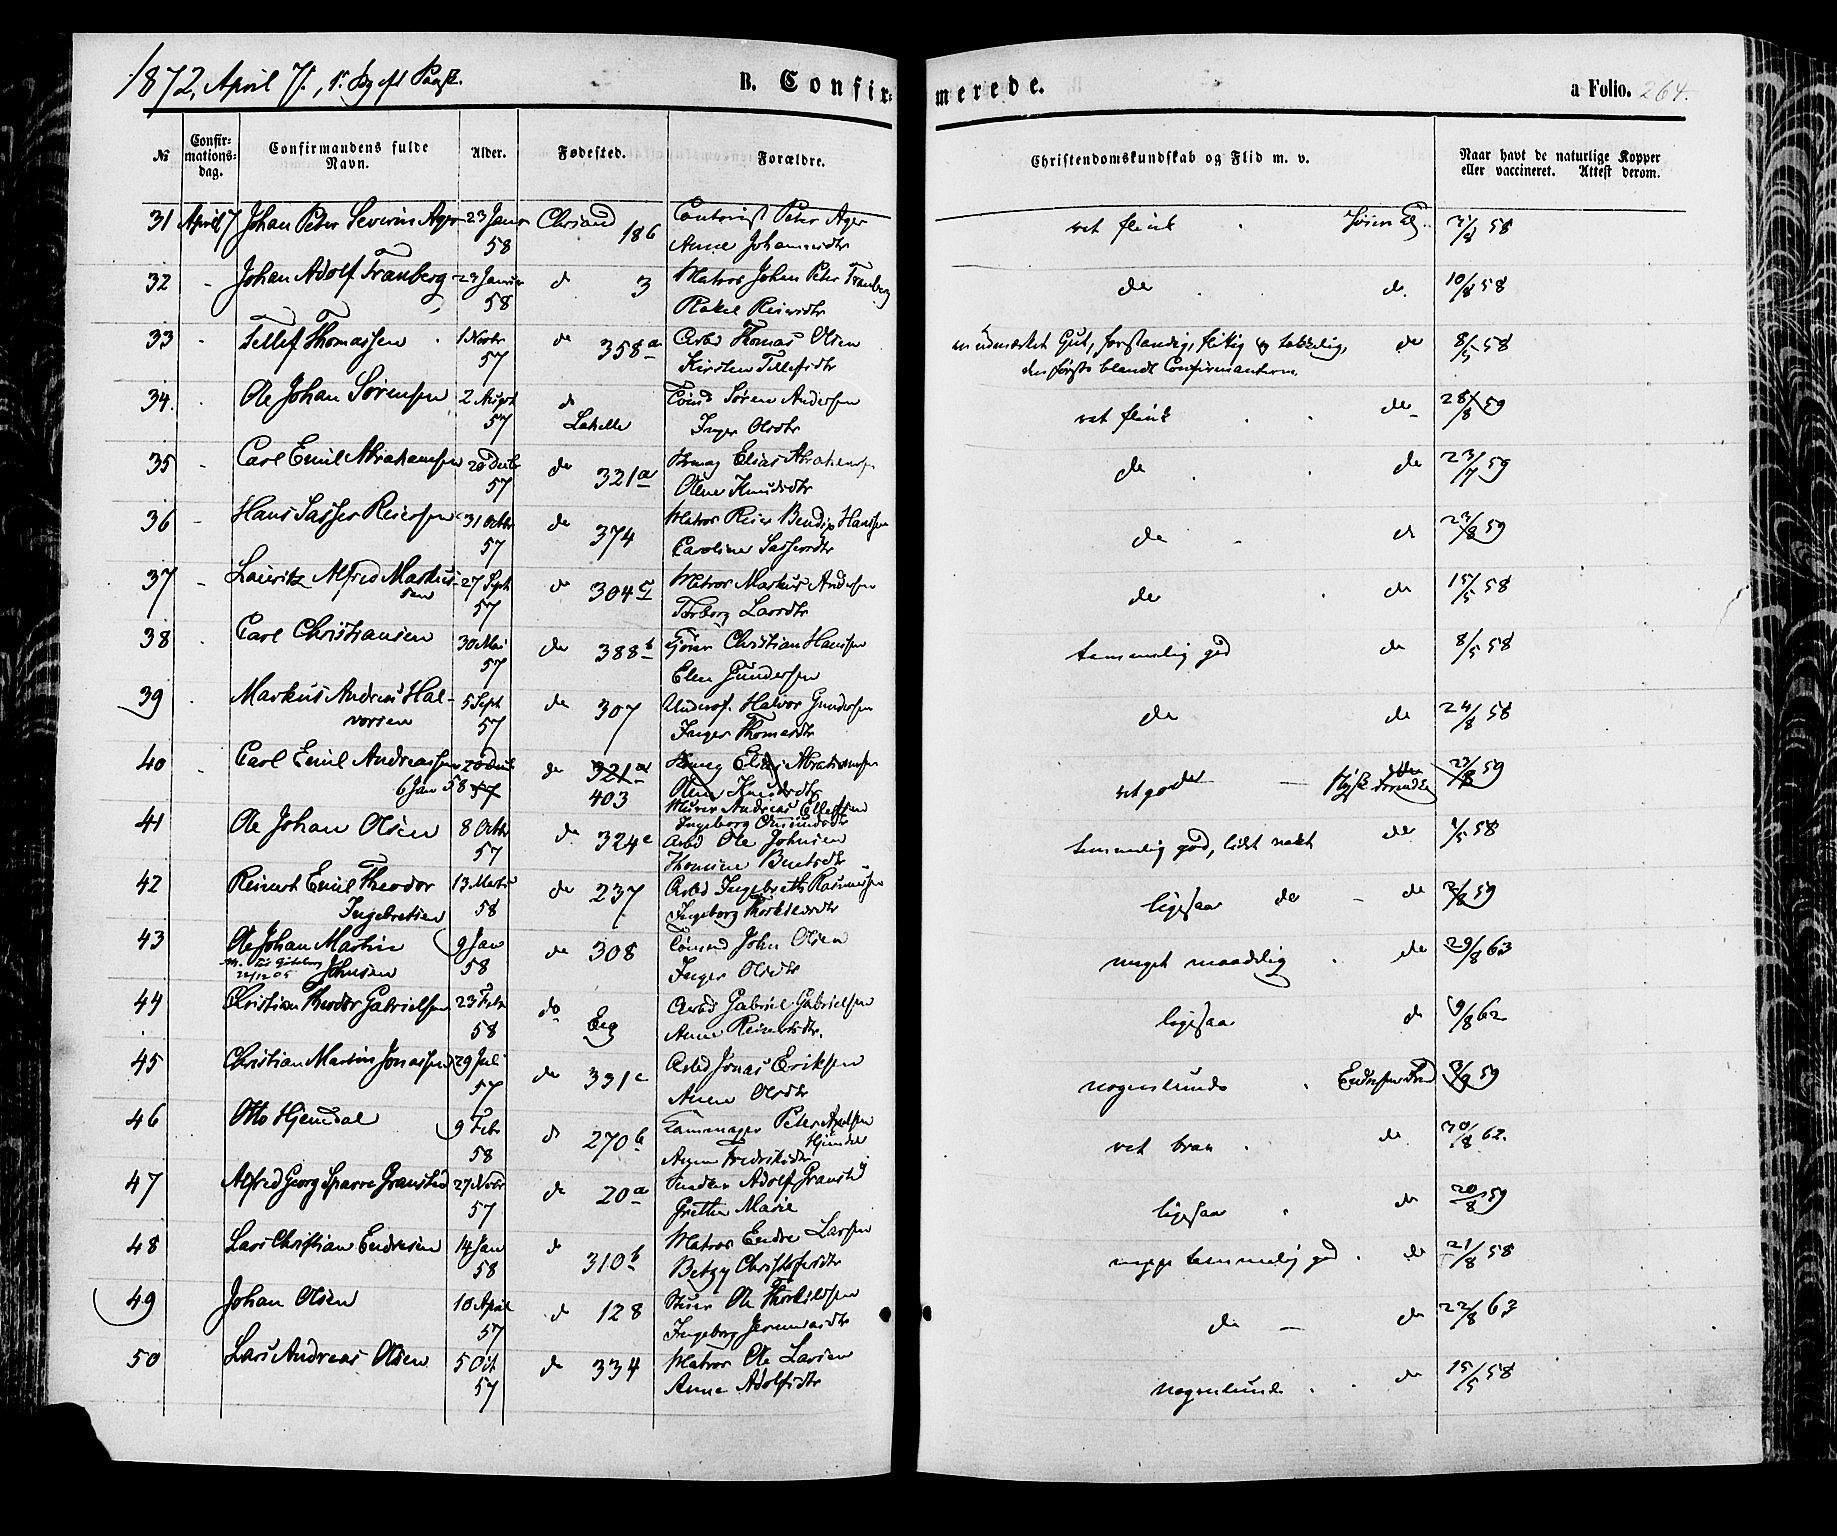 1872, April 7/., 1. S. eft Paaske.
B. Confirmerede.
a Folio. 264.
№ Confirmationsdag. Confirmandens fulde Navn. Alder. Fødested. Forældre. Christendomskundskab og Flid m. v. Naar havt de naturlige Kopper eller vaccineret. Attest derom.
31 April 7 Johan Peter Severin Ager 23 Janr Chrsand 186 Peter Ager vet flink 58
58 Anne Johannesdtr
32 - Johan Adolf Tranberg 23 Januar do 3 Matros Johan Peter Tranberg do do. 10/8 58
58 Rakel Reiersdtr
33 - Tellef Thomassen 1 Novbr do 358a Arbd Thomas Olsen en udmærket Gut, forstandig, flittig og do 8/5 58
57 Kirsten Tellefsdtr den første blandt Confirmanterne.
34. - Ole Johan Sørensen 2 August do Tømd Søren Andersen vet flink do 28/8 59
57 Lahelle Inger Olsdtr
35 - Carl Emil Abrahamsen 20 Decbr do 321a Elias Abrahamsen do do 23/7 59
57 Olene Knudsdtr
36 - Hans Sasser Reiersen 31 Octbr do 374 Matros Reier Bendix Hanssen do do 23/8 59
57 Caroline Sassersdtr
37 - Lauritz Alfred Markussen 27 Sept do 304c Matros Markus Andersen do do 15/5 58
57 Torborg Larsdtr
38 - Carl Christiansen 30 Mai do 388b Christian Hanssen temmelig god do 8/5 58
57 Elen Gundersen
39 - Markus Andreas Halvorsen 5 Sept do 307 Underof. Halvor Gundersen do do 24/8 58
57 Inger Thomasdtr
40 - Carl Emil Andreassen 20 Decb do 321a Elias Abrahamsen vet god 23/8 59
6 Jan 58 57 403 Olene Knudsdtr
Murer Andreas Ellefsen
Ingeborg
41 Ole Johan Olsen 8 Octbr do 324c Arbd Ole Johnsen temmelig god, lidt do 58
57 Thomine Berntsdtr
42 Reinert Emil Theodor 13 Marts do 237 Arbd Ingebreth Rasmussen ligesaa do - do 59
Ingebretsen 58 Ingeborg Thorkildsdtr
43 Ole Johan Martin 9 Jan do 308 Tømmd John Olsen meget maadelig do 29/8 63
22/12 05 Johnsen 58 Inger Olsdtr
44 Christian Theodor Gabrielsen 23 Febr do Eeg Arbd Gabriel Gabrielsen ligesaa do 9/8 62
58 Anne Reinertsdtr.
45 Christian Martin Jonassen 29 Juli do 331c Arbd Jonas Eriksen nogenlunde 59
57 Anne Olsdtr
46 Otto Hjemdal 9 Febr do 270b Peter Axelsen vet bra do 30/8 62.
58 Fredriksdtr
47 Alfred Georg Sparre Granstad 27 Novbr do 20a Snedker Adolf Granstad ligesaa do 20/8 59
57 Grethe Marie
48 Lars Christian Endresen 14 Jan do 310b Matros Endre Larsen neppe temmelig god do 21/8 58
58 Betzy Christofersdtr
49 Johan Olsen 10 April do 128 Ole Thorkildsen do - do 22/8 63
57 Ingeborg
50 Lars Andreas Olsen 5 Oct do 334 Matros Ole Larsen nogenlunde do 15/5 58
57 Anne Adolfsdtr